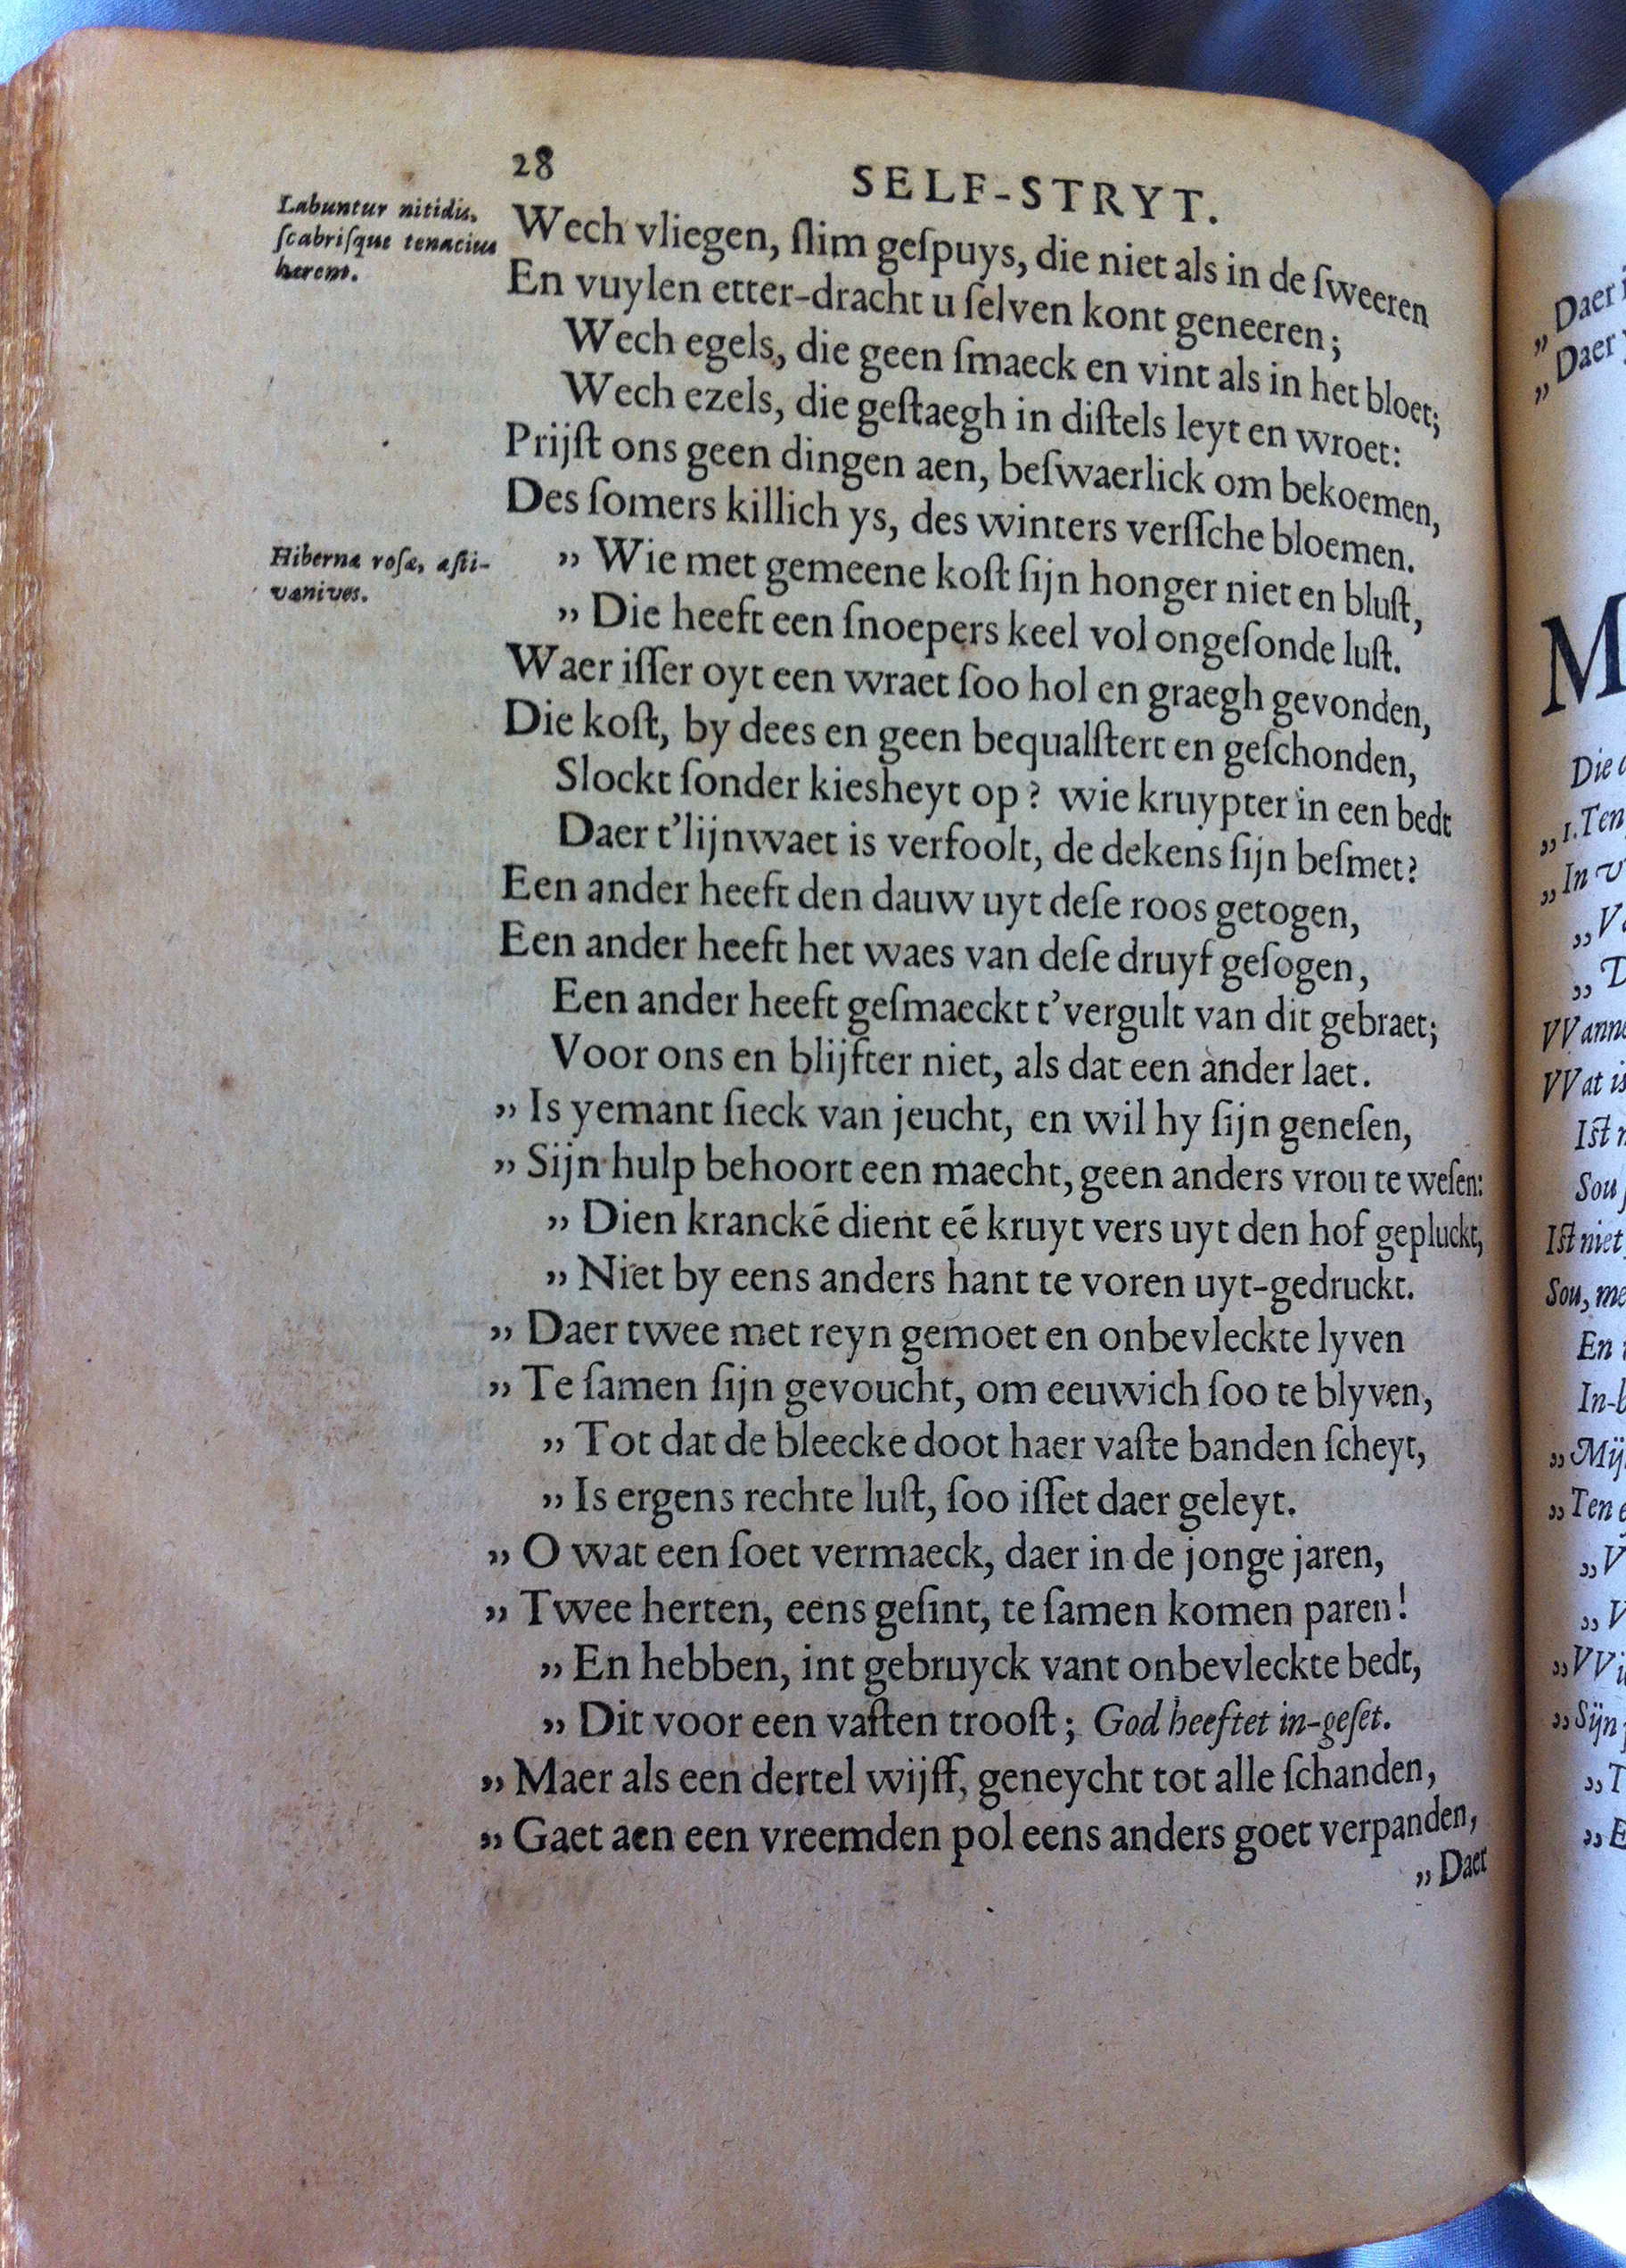 28
SELF-STRYT.
Labuntur nitidis,
ſcabriſque tenacius
hærent.
Wech vliegen, ſlim geſpuys, die niet als in de ſweeren
En vuylen etter-dracht u ſelven kont geneeren;
Wech egels, die geen ſmaeck en vint als in het bloet;
Wech ezels, die geſtaegh in diſtels leyt en wroet:
Prijſt ons geen dingen aen, beſwaerlick om bekoemen,
Des ſomers killich ys, des winters verſſche bloemen.
Hibernæ roſæ, æſti-
vænives.
„ Wie met gemeene koſt ſijn honger niet en bluſt,
„ Die heeft een ſnoepers keel vol ongeſonde luſt.
Waer iſſer oyt een wraet ſoo hol en graegh gevonden,
Die koſt, by dees en geen bequalſtert en geſchonden,
Slockt ſonder kiesheyt op? wie kruypter in een bedt
Daer t'lijnwaet is verfoolt, de dekens ſijn beſmet?
Een ander heeft den dauw uyt deſe roos getogen,
Een ander heeft het waes van deſe druyf geſogen,
Een ander heeft geſmaeckt t'vergult van dit gebraet;
Voor ons en blijfter niet, als dat een ander laet.
„ Is yemant ſieck van jeucht, en wil hy ſijn geneſen,
„ Sijn hulp behoort een maecht, geen anders vrou te weſen:
„ Dien kranckē dient eē kruyt vers uyt den hof gepluckt,
„ Niet by eens anders hant te voren uyt-gedruckt.
„ Daer twee met reyn gemoet en onbevleckte lyven
„ Te ſamen ſijn gevoucht, om eeuwich ſoo te blyven,
„ Tot dat de bleecke doot haer vaſte banden ſcheyt,
„ Is ergens rechte luſt, ſoo iſſet daer geleyt.
„ O wat een ſoet vermaeck, daer in de jonge jaren,
„ Twee herten, eens geſint, te ſamen komen paren!
„ En hebben, int gebruyck vant onbevleckte bedt,
„ Dit voor een vaſten trooſt; God heeftet in-geſet.
„ Maer als een dertel wijff, geneycht tot alle ſchanden,
„ Gaet aen een vreemden pol eens anders goet verpanden,
„ Daer
„ Daer
„ Daer
M
Die
„1. Ten
„In
„
„
VVanne
VVat is
Iſt
Sou
Iſt niet
Sou, me
En
In-
„Mij
„Ten
„V
„V
„VVi
„Sijn
„T
„E